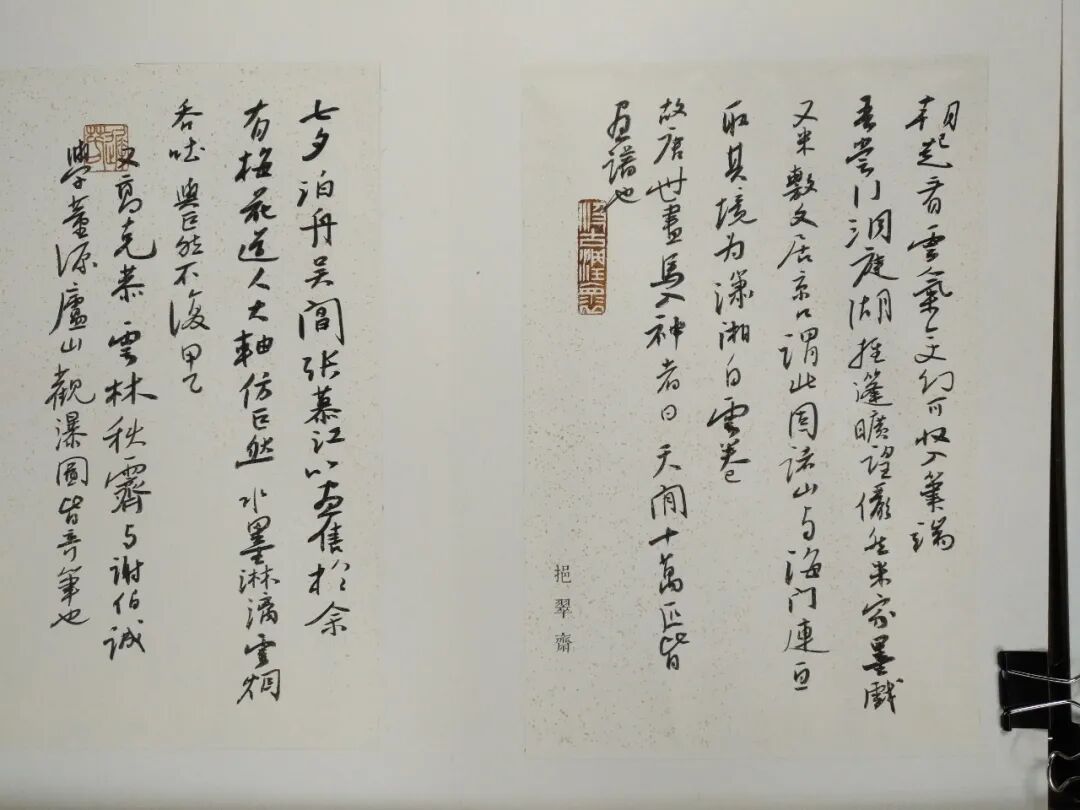 朝起看雲氣变幻可收入筆端
吾嘗行洞庭湖推篷曠望儼然米家墨戲
又米敷文居京口謂北固諸山与海门連亘
取其境为瀟湘白雲卷
故唐世畫馬入神者曰天閑十萬匹皆
画譜也
挹翠齋
七夕泊舟吴閶张慕江以画售於余
有梅花道人大軸仿巨然水墨淋漓雲烟
吞吐與巨然不復甲乙
又高克恭雲林秋霽与谢伯诚
學董源廬山觀瀑圖皆奇筆也